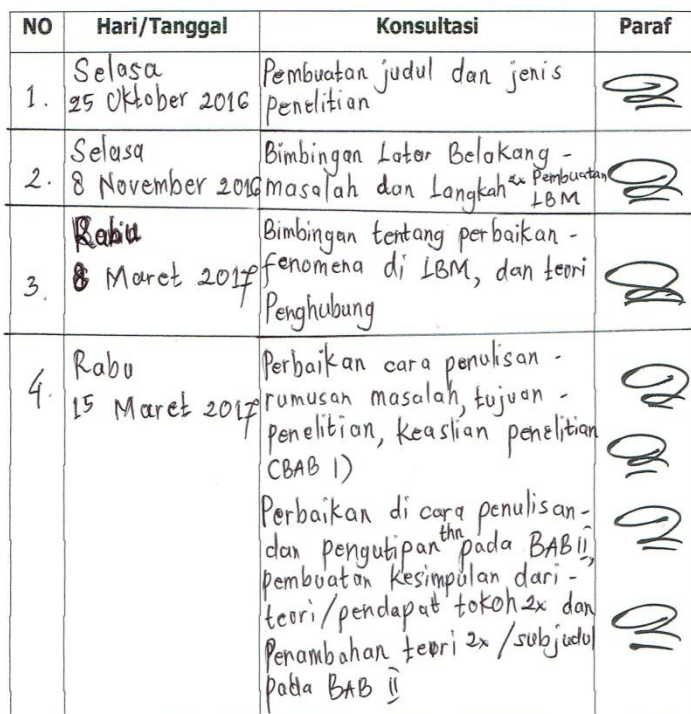 NO Hari/Tanggal Konsultasi Paraf
1. Selasa
25 Oktober 2016
Pembuatan judul dan jenis
penelitian
2. Selasa
8 November 2016
Bimbingan Latar Belakang -
masalah dan Langkah2x Pembuatan
LBM
3. Rabu
8 Maret 2017
Bimbingan tentang perbaikan -
fenomena di LBM, dan teori
Penghubung
4. Rabu
15 Maret 2017
Perbaikan cara penulisan -
rumusan masalah, tujuan -
penelitian, keaslian penelitian
(BAB 1)
Perbaikan di cara penulisan -
dan pengutipan thn pada BAB II,
pembuatan kesimpulan dari -
teori/pendapat tokoh2x dan
Penambahan teori2x/subjudul
pada BAB II